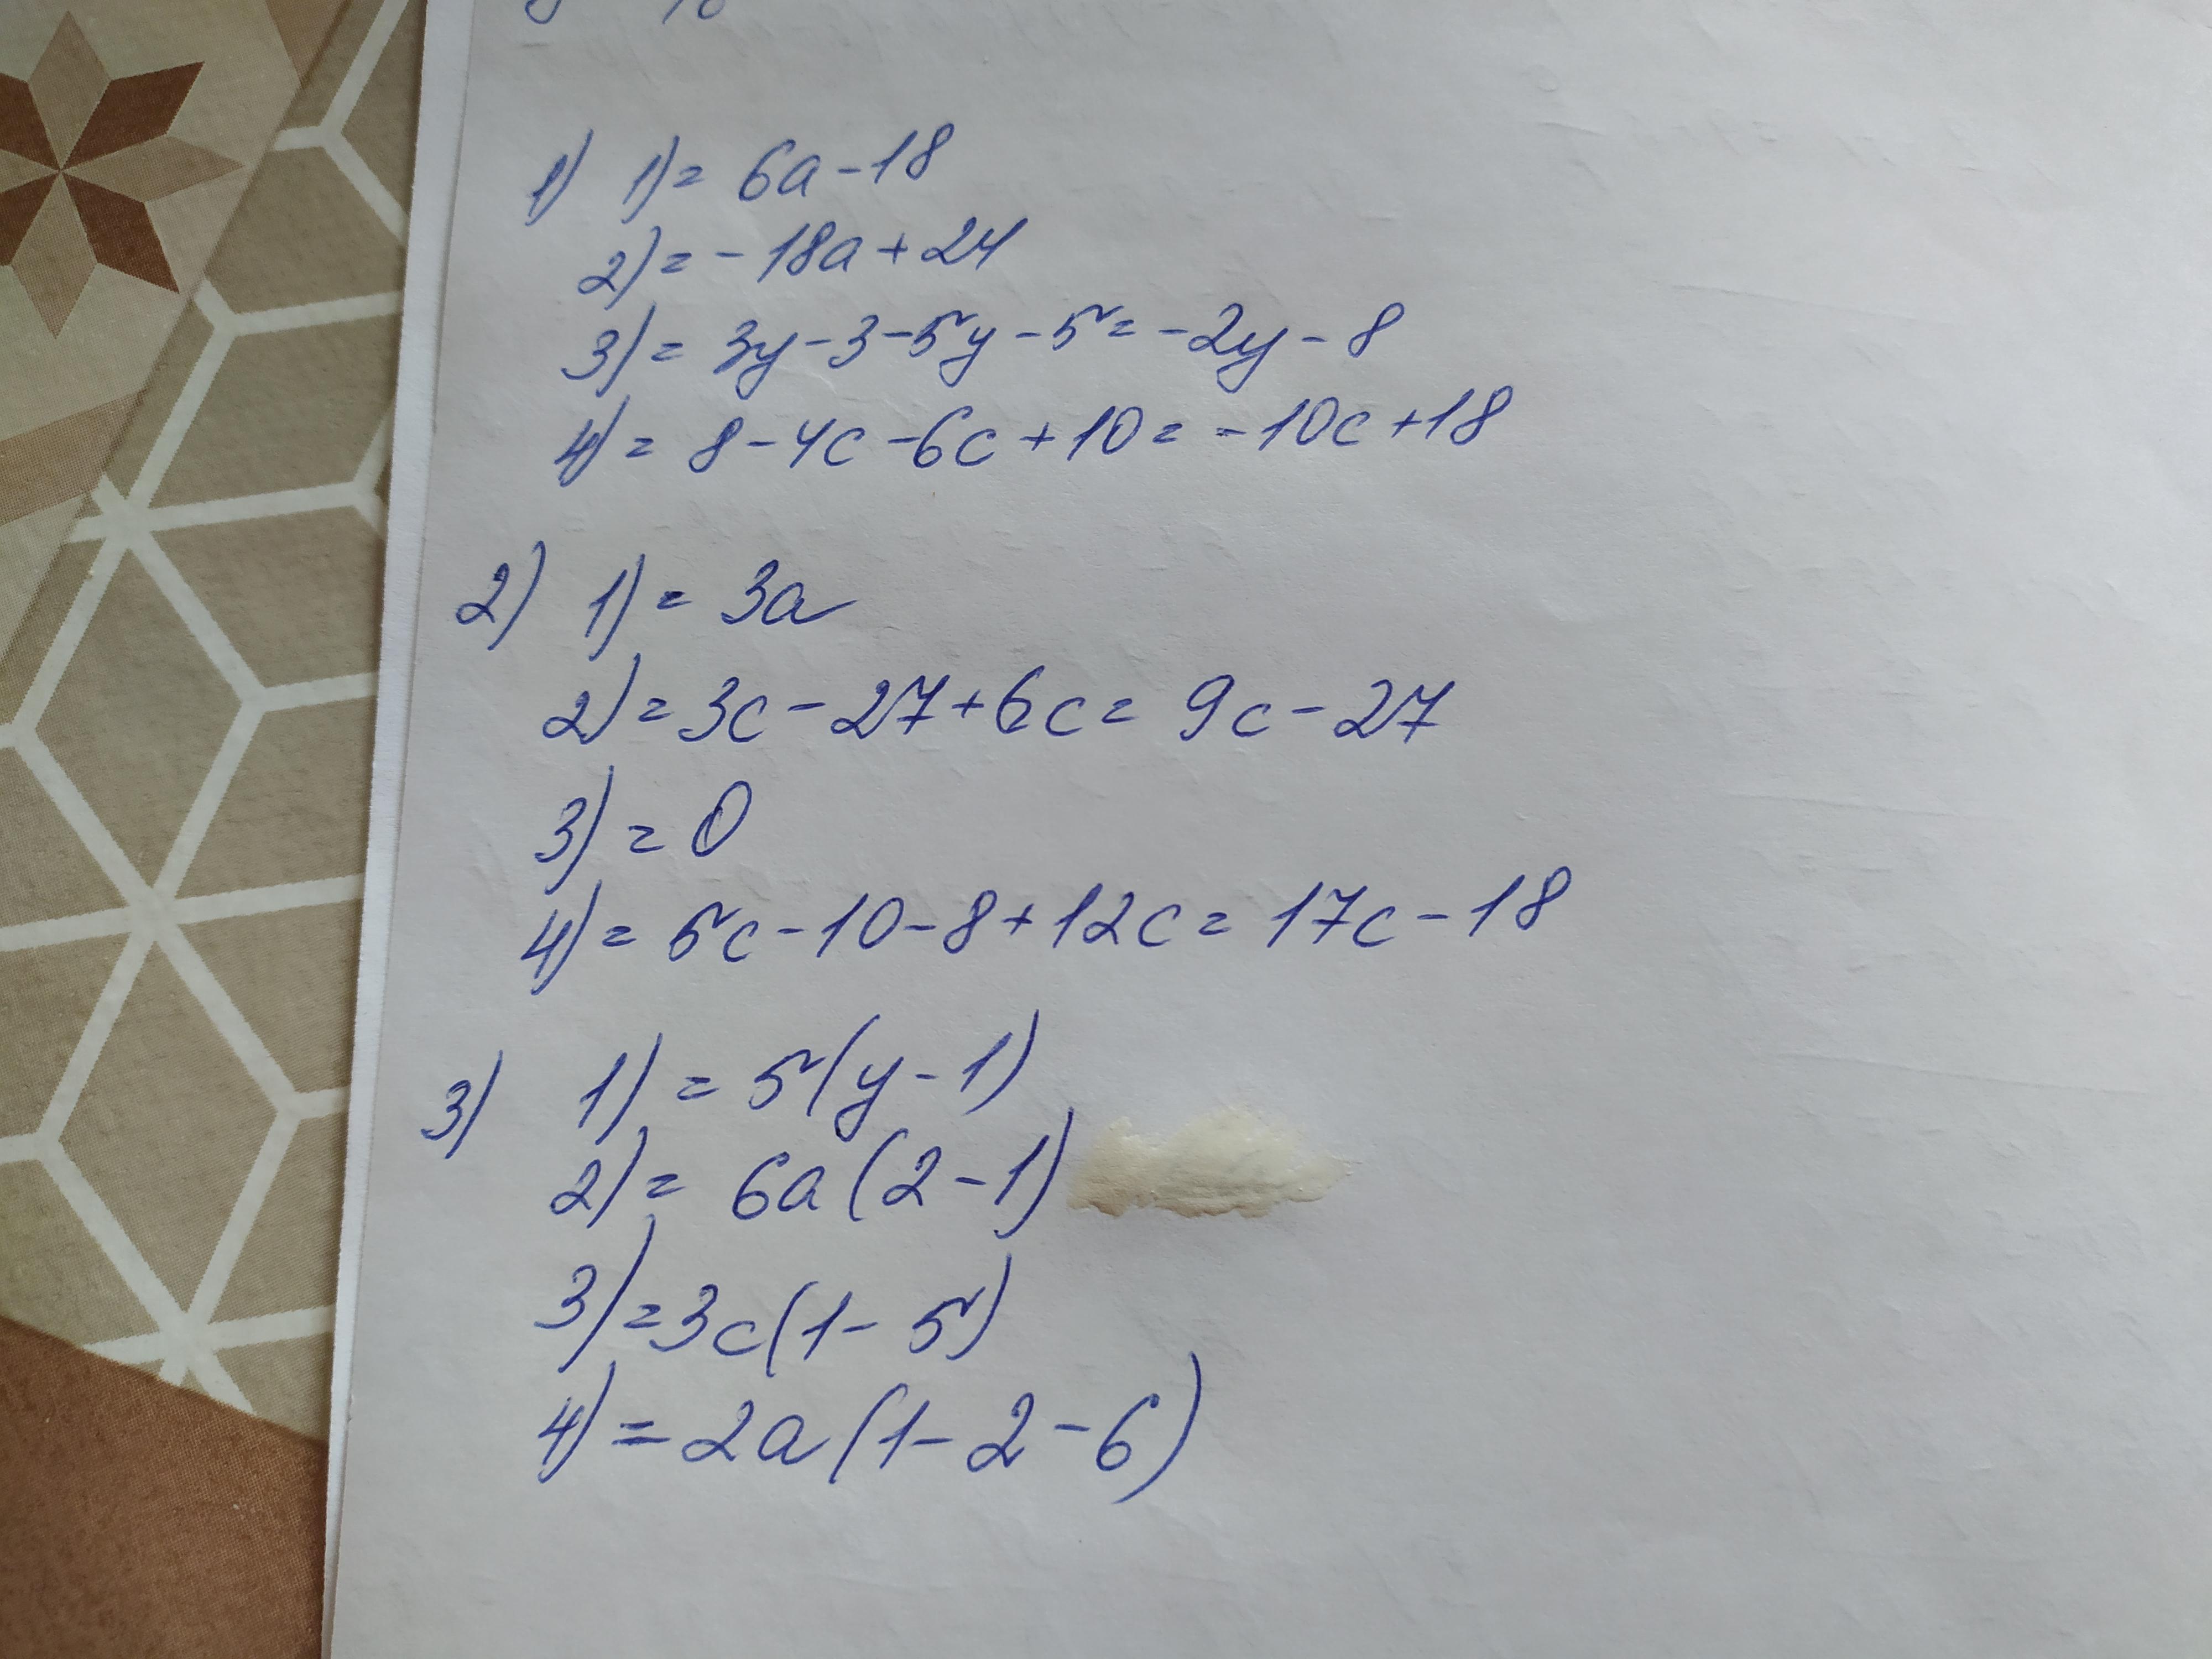 1) 1) = 6a - 18
2) = - 18a + 24
3) = 3y - 3 - 5y - 5 = - 2y - 8
4) = 8 - 4c - 6c + 10 = - 10c + 18
2) 1) = 3a
2) = 3c - 27 + 6c = 9c - 27
3) = 0
4) = 5c - 10 - 8 + 12c = 17c - 18
3) 1) = 5(y - 1)
2) = 6a (2 - 1)
3) = 3c(1 - 5)
4) = 2a (1 - 2 - 6)